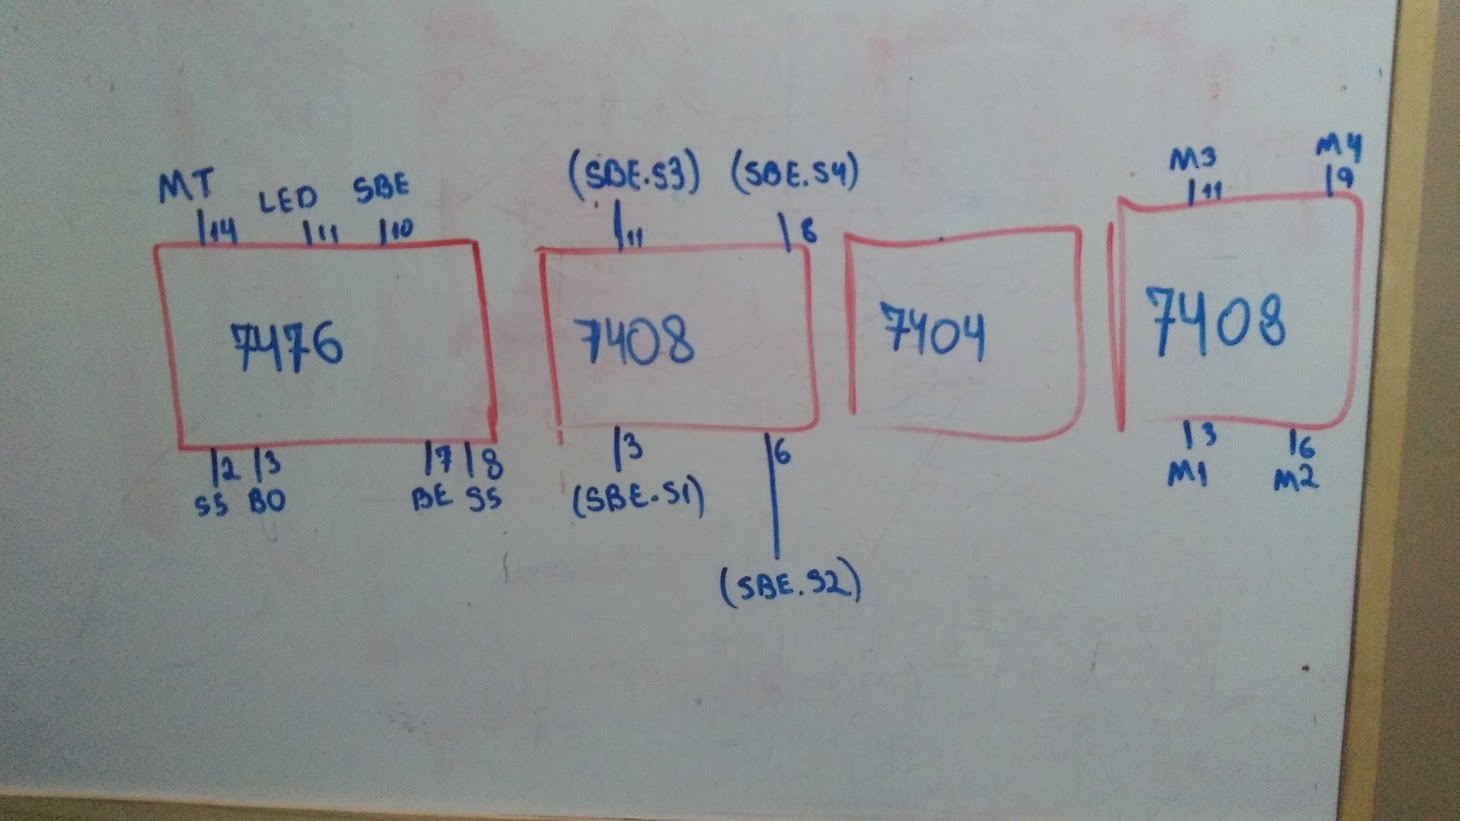 MT LED SBE
14 11 10
7476
2 3 7 8
SS BO BE SS
(SBE.S3) (SBE.S4)
11 8
7408
3 6
(SBE.S1)
(SBE.S2)
7404
M3 M4
11 9
7408
3 6
M1 M2